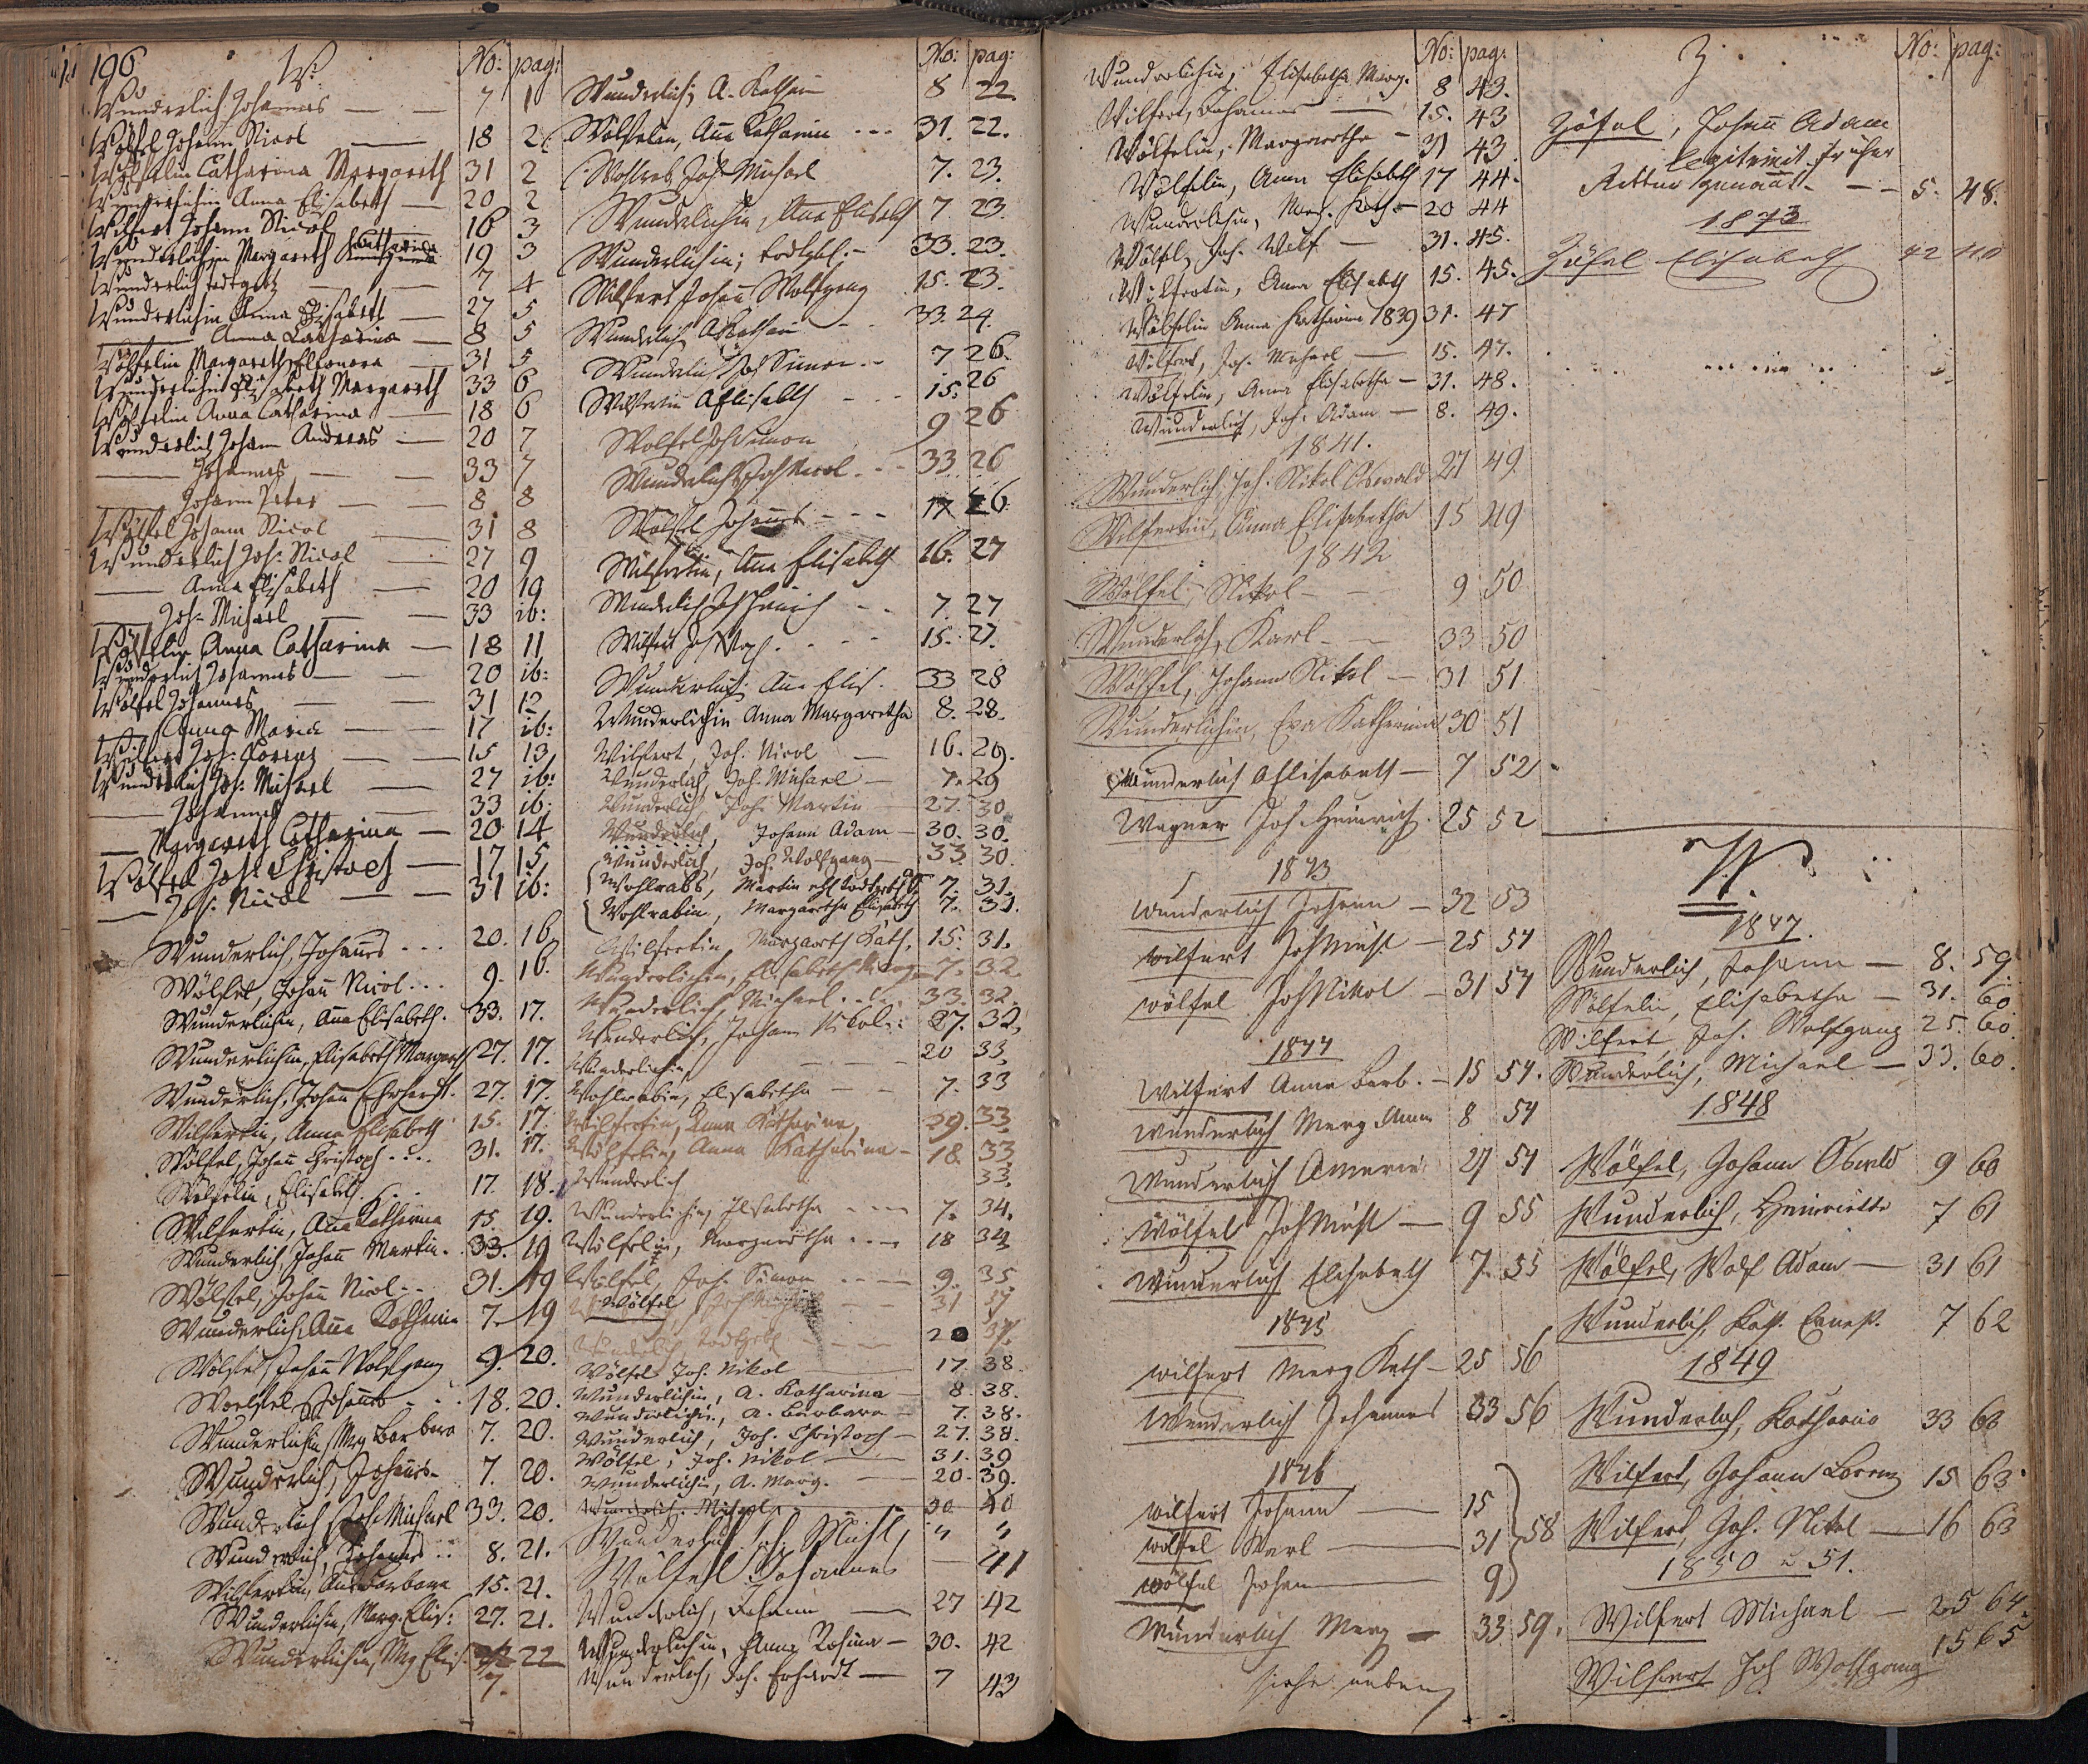 196 W. No: pag:
Wunderlich Johannes — — 7 1
Wölfel Johann Nicol — 18 2
Wölfelin Catharina Margareth 31 2
Wunderlichin Anna Elisabeth — 20 2
Wilfert Johann Nicol 16 3
Wunderlichin Margareth Catharina 19 3
Wunderlich — — 7 4
Wunderlichin Anna Elisabeth — 27 5
— Anna Catharina — 8 5
Wölfelin Margareth Eleonora — 31 5
Wunderlichin Elisabeth Margareth 33 6
Wölfelin Anna Catharina — 18 6
Wunderlich Johann Andreas — 20 7
— Johannes — — 33 7
— Johann Peter — — 8 8
Wölfel Johann Nicol — 31 8
Wunderlich Joh: Nicol — 27 9
— Anna Elisabeth — 20 19
— Joh: Michael — — 33 ib:
Wölfelin Anna Catharina — 18 11
Wunderlich Johannes — — 20 ib:
Wölfel Johannes — — 31 12
— Anna Maria — — 17 ib:
Wilfert Joh: Lorenz — — 15 13
Wunderlich Joh: Michael — 27 ib:
— Johannes — — 33 ib:
— Margareth Catharina — 20 14
Wölfel Joh: Christoph — 17 15
— Joh: Nicol — — 31 ib:
Wunderlich, Johannes ... 20. 16
Wölfel, Johann Nicol ... 9. 16.
Wunderlichin, Anna Elisabeth. 33. 17.
Wunderlichin, Elisabeth Margareth 27. 17.
Wunderlich, Johann Ehrhardt. 27. 17.
Wilfertin, Anna Elisabeth 15. 17.
Wölfel, Johann Christoph ... 31. 17.
Wölfelin, Elisabeth. 17. 18.
Wilfertin, Anna Katharina 15. 19.
Wunderlich, Johann Martin. 33. 19
Wölfel, Johann Nicol - - 31. 19
Wunderlich, Anna Katharina 7. 19
Wölfel, Johann Wolfgang 9. 20.
Woelfel Johannes - - 18. 20.
Wunderlichin, Mrg Barbara 7. 20.
Wunderlich, Johannes- 7. 20.
Wunderlich, Joh. Michael 33. 20.
Wunderlich, Johannes .. 8. 21.
Wilfertin, Barbara 15. 21.
Wunderlichin, Marg. Elis: 27. 21.
Wunderlichin, Mg Elis. 7. 22
No: pag:
Wunderlich, A. Kathar 8 22.
Wölfelin, Anna Katharina - - - 31. 22.
Wohlrab, Joh. Michael 7. 23.
Wunderlichin, Anna Elisabeth 7 23.
Wunderlichin; - 33. 23.
Wilfert Johann Wolfgang 15. 23.
Wunderlich, A Kathar - - 33. 24.
Wunderlich Joh Simon - - 7 26.
A Elisabeth - - 15. 26
Wölfel Joh Simon 9 26
Wunderlich Joh Nicol. - - 33 26
Wölfel Johannes - - - 17 26
Wilfertin, Anna Elisabeth 16. 27
Wunderlich Joh Heinrich - - 7. 27
Wilfert - - 15. 27.
Wunderlich, Anna Elis. 33 28
Wunderlichin Anna Margaretha 8. 28.
Wilfert, Joh. Nicol — 16. 29.
Wunderlich, Joh. Michael — 7. 29
Wunderlich, Joh. Martin — 27. 30
Wunderlich, Johann Adam — 30. 30.
Wunderlich, Joh. Wolfgang — 33. 30.
Wohlrab, Martin 7. 31.
Wohlrabin, Margaretha Elisabeth 7. 31.
Wilfertin Margareth Kath. 15. 31.
Wunderlichin, Elisabeth Marg. 7. 32.
Wunderlich, Michael ... 33. 32.
Wunderlich, Johann Nikol. 27. 32.
Wunderlichin, — — 20 33.
Wohlrabin, Elisabetha — — 7. 33
Wilfertin, Anna Katharina, 29. 33.
Wölfelin, Anna Katharina - 18. 33.
Wunderlich 33.
Wunderlichin, Elisabetha - - - 7. 34.
Wölfelin, Margaretha - - - 18 34.
Wölfel, Joh. Simon - - - 9. 35.
Wölfel, — — 31 37
Wunderlich — — 20 37.
Wölfel Joh. Nikol — 17. 38.
Wunderlichin, A. Katharina — 8. 38.
Wunderlichin, A. Barbara — 7. 38.
Wunderlich, Joh. Christoph — 27. 38.
Wölfel, Joh. Nikol — 31. 39
Wunderlichin, A. Marg. — 20. 39.
Wunderlich. Michael 30 40
Wunderlich Michl, " "
Wölfel Johannes 41
Wunderlich, Johann — 27 42
Wunderlichin, Anna Rosina — 30. 42
Wunderlich, Joh. Erhardt — 7 43
No: pag:
Wunderlichin, Elisabetha Marg. 8 43.
Wilfert, Johannes — 15. 43
Wölfelin, Margaretha — 31 43.
Wölfelin, Anna Elisabeth 17 44.
Wunderlichin, Marg. Kath. — 20 44
Wölfel, Joh. Wolf — 31. 45.
Wilfertin, Anna Elisabeth 15. 45.
Wölfelin Anna Katharina 1839 31. 47
Wilfert, Joh. Michael — 15. 47.
Wölfelin, Anna Elisabetha — 31. 48.
Wunderlich, Joh. Adam — 8. 49.
1841.
Wunderlich, Joh. Nikol Oswald 27 49
Wilfertin, Anna Elisabetha 15 49
1842
Wölfel, Nikol — 9 50
Wunderlich, Karl — 33 50
Wölfel, Johann Nikol — 31 51
Wunderlichin, Eva Katharina 30 51
Wunderlich A Elisabeth — 7 52
Wagner Joh. Heinrich 25 52
1843
Wunderlich Johann — 32 53
Wilfert Joh Michl — 25 54
Wölfel Joh Nikol — 31 54
1844
Wilfert Anna Barb. — 15 54.
Wunderlich Marg Anna 8 54
Wunderlich 27 54
Wölfel Joh Michl — 9 55
Wunderlich Elisabeth 7 55
1845
Wilfert Marg Kath — 25 56
Wunderlich Johannes 33 56
1846
Wilfert Johann — 15
Wölfel Karl — 31 58
Wölfel Johann — 9
Wunderlich Marg — 33 59.
siehe neben
Z. No: pag:
Zöfel, Johann Adam
legitimit. früher
Ritter genannt. — — 5. 48.
1873
Zöfel Elisabeth 42 110
W.
1847.
Wunderlich, Johann — 8. 59.
Wölfelin, Elisabetha — 31. 60
Wilfert, Joh. Wolfgang 25. 60.
Wunderlich, Michael — 33. 60.
1848
Wölfel, Johann 9 60
Wunderlich, Heinrietta 7 61
Wölfel, Wolf Adam — 31 61
Wunderlich, Ernst. 7 62
1849
Wunderlich, Katharina 33 63
Wilfert, Johann Lorenz 15 63
Wilfert, Joh. Nikol — 16 63
1850 u 51.
Wilfert Michael — 25 64.
Wilfert Joh Wolfgang 15 65